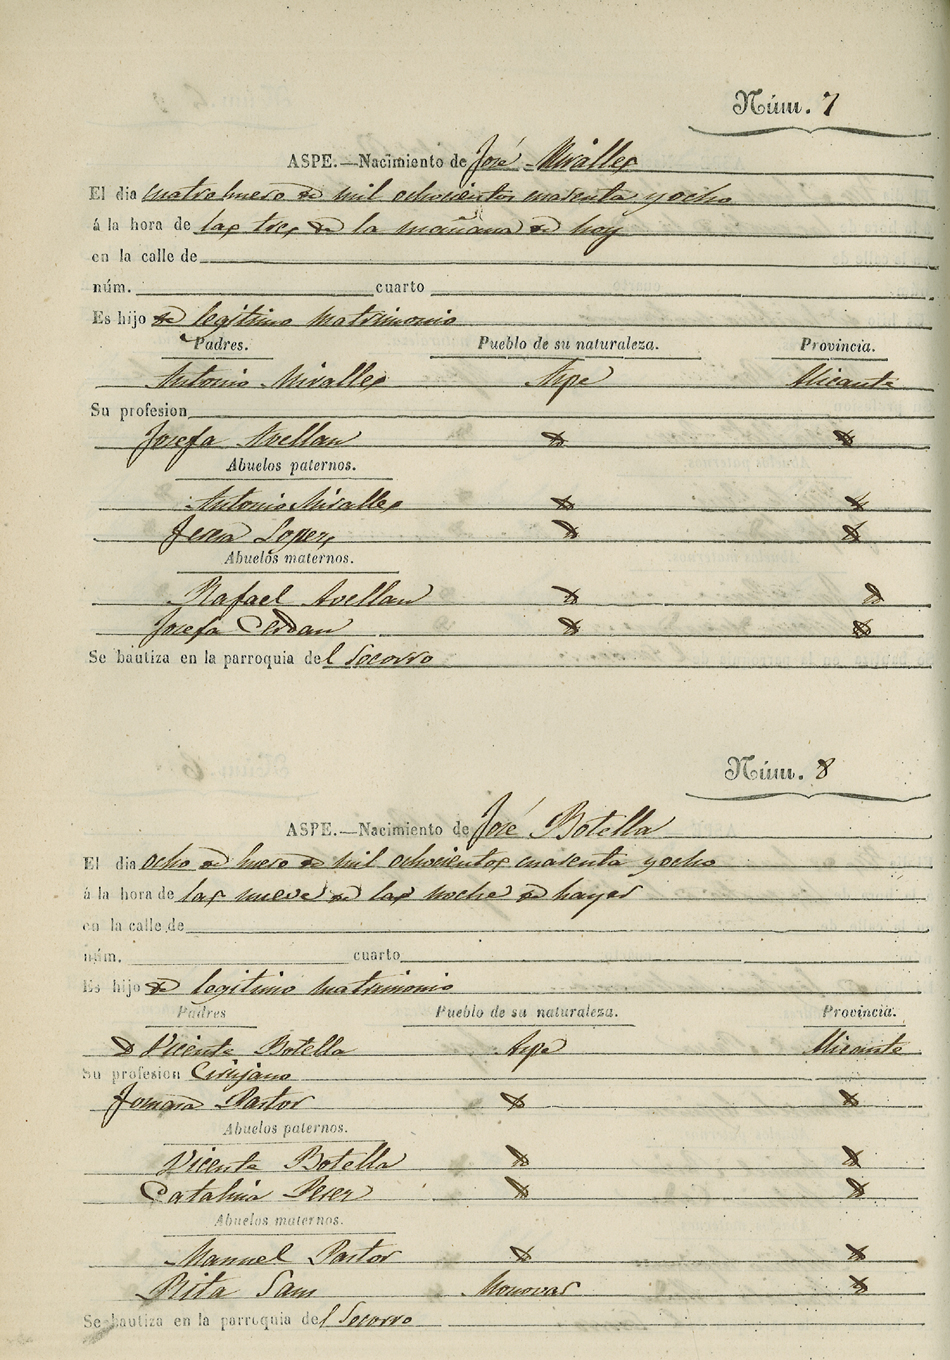 Núm. 7
ASPE.—Nacimiento de José Miralles
El dia cuatro henero de mil ochocientos cuarenta y ocho
á la hora de las tres de la mañana de hoy
en la calle de
núm. cuarto
Es hijo de legitimo matrimonio
Padres. Pueblo de su naturaleza. Provincia.
Antonio Miralles Aspe Alicante
Su profesion
Josefa Avellan
Abuelos paternos.
Antonio Miralles
Lopez
Abuelos maternos.
Rafael Avellan
Josefa Cerdan
Se bautiza en la parroquia del Socorro
Núm. 8
ASPE.—Nacimiento de José Botella
El dia ocho de henero de mil ochocientos cuarenta y ocho
á la hora de las nueve de la noche de hayer
en la calle de
núm. cuarto
Es hijo de legitimo matrimonio
Padres Pueblo de su naturaleza. Provincia.
D Vicente Botella Aspe Alicante
Su profesion Cirujano
Pastor
Abuelos paternos.
Vicente Botella
Catalina Perez
Abuelos maternos.
Manuel Pastor
Rita Monovar
Se bautiza en la parroquia del Socorro